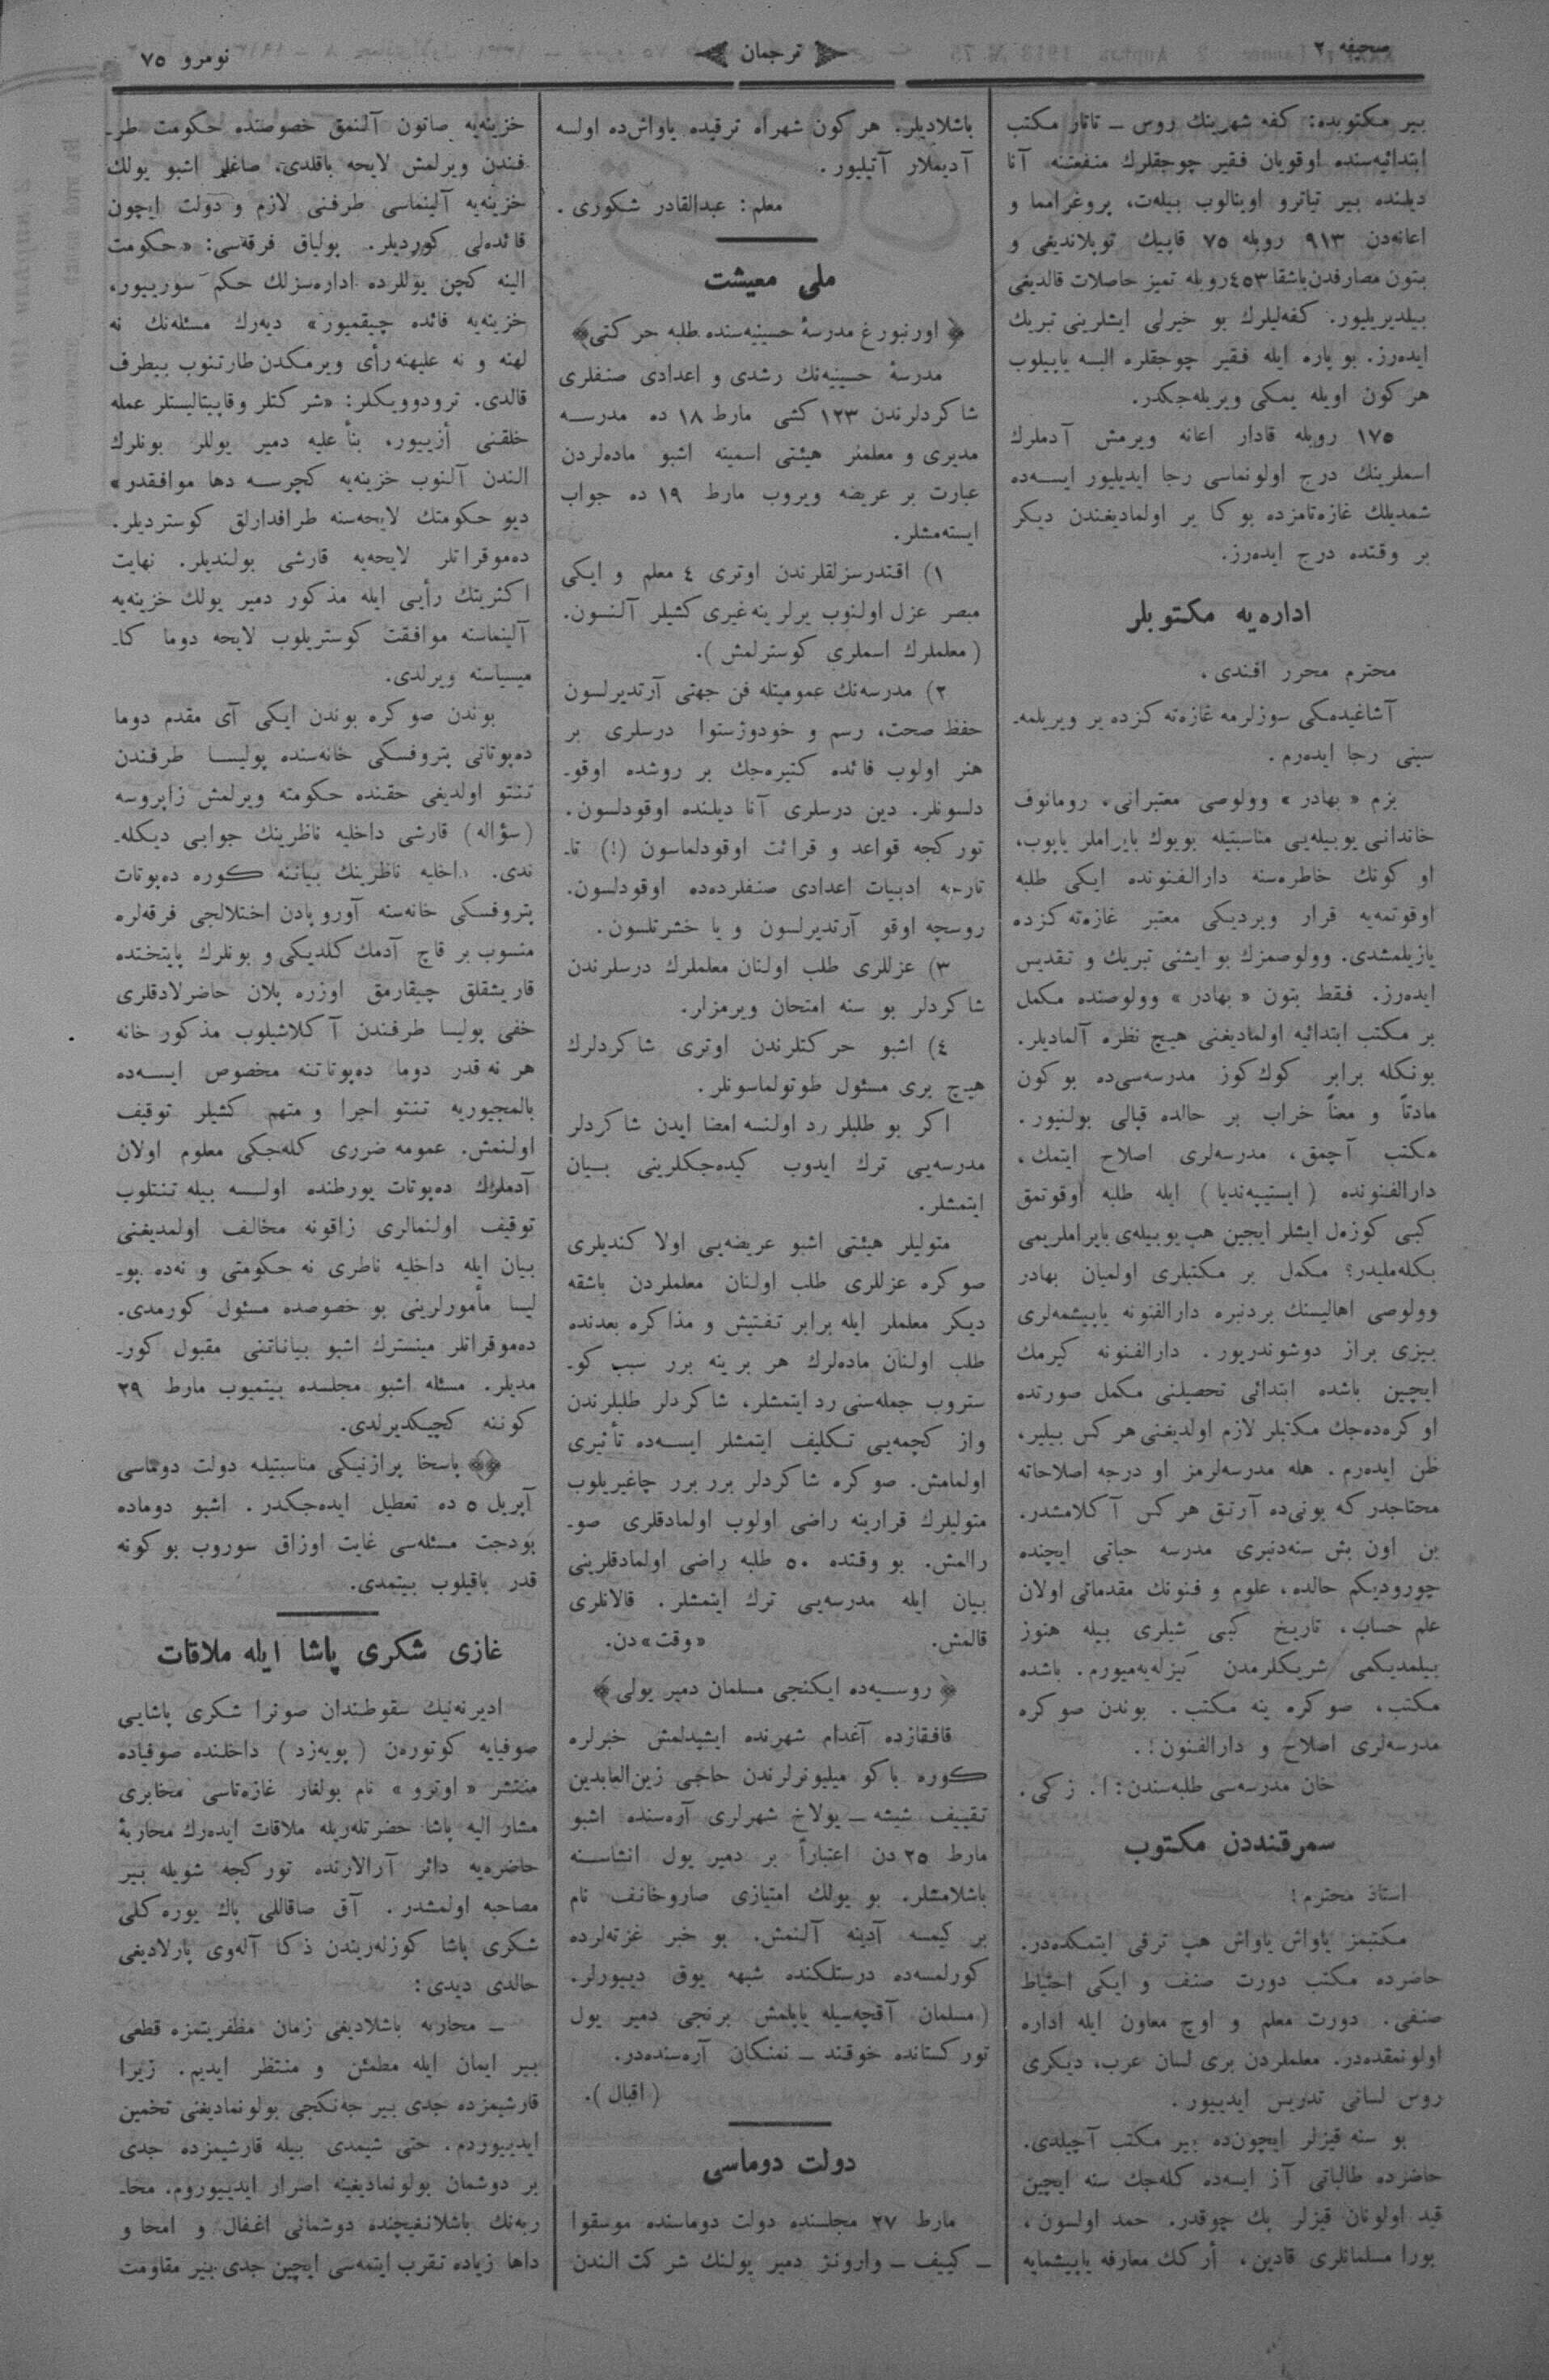 صحیفه ٢
ترجمان
نومرو ٧٥
بیر مکتوبده: کفه شهرینك روس ــ تاتار مکتب
ابتدائیه‌سنده اوقویان فقیر چوجقلرك منفعتنه آنا
دیلنده بیر تیاترو اوینالوب بیله‌ت، پروغرامما و
اعانه‌دن ٩١٣ روبله ٧٥ قاپیك توپلاندیغی و
بتون مصارفدن باشقا ٤٥٣ روبله تمیز حاصلات قالدیغی
بیلدیریلیور. کفه‌لیلرك بو خیرلی ایشلرینی تبریك
ایده‌رز. بو پاره ایله فقیر چوجقلره البسه یاپیلوب
هر کون اویله یمکی ویریله‌جکدر.
١٧٥ روبله قادار اعانه ویرمش آدملرك
اسملرینك درج اولونماسی رجا ایدیلیور ایسه‌ده
شمدیلك غازه‌تامزده بوکا یر اولمادیغندن دیکر
بر وقتده درج ایده‌رز.
اداره‌یه مکتوبلر
محترم محرر افندی.
آشاغیده‌کی سوزلرمه غازه‌ته‌کزده یر ویریلمه‌ـ
سینی رجا ایده‌رم.
بزم « بهادر » وولوصی معتبرانی، رومانوف
خاندانی یوبیله‌یی مناسبتیله بویوك بایراملر یاپوب،
او کونك خاطره‌سنه دارالفنونده ایکی طلبه
اوقوتمه‌یه قرار ویردیکی معتبر غازه‌ته‌کزده
یازیلمشدی. وولوصمزك بو ایشنی تبریك و تقدیس
ایده‌رز. فقط بتون « بهادر » وولوصنده مکمل
بر مکتب ابتدائیه اولمادیغنی هیچ نظره آلمادیلر.
بونکله برابر کوك‌کوز مدرسه‌سی‌ده بو کون
مادتاً و معناً خراب بر حالده قپالی بولنیور.
مکتب آچمق، مدرسه‌لری اصلاح ایتمك،
دارالفنونده ( ایستیپه‌ندیا ) ایله طلبه اوقوتمق
کبی کوزه‌ل ایشلر ایچین هپ یوبیله‌ی بایراملریمی
بکله‌ملیدر؟ مکمل بر مکتبلری اولمیان بهادر
وولوصی اهالیسنك بردنبره دارالفنونه یاپیشمه‌لری
بیزی براز دوشوندریور. دارالفنونه کیرمك
ایچین باشده ابتدائی تحصیلنی مکمل صورتده
اوکره‌ده‌جك مکتبلر لازم اولدیغنی هر کس بیلیر،
ظن ایده‌رم. هله مدرسه‌لرمز او درجه اصلاحاته
محتاجدر که بونی‌ده آرتق هر کس آکلامشدر.
بن اون بش سنه‌دنبری مدرسه حیاتی ایچنده
چورودیکم حالده، علوم و فنونك مقدماتی اولان
علم حساب، تاریخ کبی شیلری بیله هنوز
بیلمدیکمی شریکلرمدن کیزله‌یه‌میورم. باشده
مکتب، صوکره ینه مکتب. بوندن صوکره
مدرسه‌لری اصلاح و دارالفنون!.
خان مدرسه‌سی طلبه‌سندن: ا. زکی.
سمرقنددن مکتوب
استاذ محترم!
مکتبمز یاواش یاواش هپ ترقی ایتمکده‌در.
حاضرده مکتب دورت صنف و ایکی احتیاط
صنفی. دورت معلم و اوچ معاون ایله اداره
اولونمقده‌در. معلملردن بری لسان عرب، دیکری
روس لسانی تدریس ایدییور.
بو سنه قیزلر ایچون‌ده بیر مکتب آچیلدی.
حاضرده طالباتی آز ایسه‌ده کله‌جك سنه ایچین
قید اولونان قیزلر پك چوقدر. حمد اولسون،
بورا مسلمانلری قادین، أرکك معارفه یاپیشمایه
باشلادیلر. هر کون شهراه ترقیده یاواش‌ده اولسه
آدیملار آتیلیور.
معلم: عبدالقادر شکوری.
ملی معیشت
﴿ اورنبورغ مدرسهٔ حسینیه‌سنده طلبه حرکتی﴾
مدرسهٔ حسینیه‌نك رشدی و اعدادی صنفلری
شاکردلرندن ١٢٣ کشی مارط ١٨ ده مدرسه
مدیری و معلمنر هیئتی اسمینه اشبو ماده‌لردن
عبارت بر عریضه ویروب مارط ١٩ ده جواب
ایسته‌مشلر.
١) اقتدرسزلقلرندن اوتری ٤ معلم و ایکی
مبصر عزل اولنوب یرلرینه غیری کشیلر آلنسون.
(معلملرك اسملری کوسترلمش).
٢) مدرسه‌نك عمومیتله فن جهتی آرتدیرلسون
حفظ صحت، رسم و خودوژستوا درسلری بر
هنر اولوب فائده کتیره‌جك بر روشده اوقوـ
دلسونلر. دین درسلری آنا دیلنده اوقودلسون.
تورکجه قواعد و قرائت اوقودلماسون (!) تاـ
تارجه ادبیات اعدادی صنفلرده‌ده اوقودلسون.
روسچه اوقو آرتدیرلسون و یا خشرتلسون.
٣) عزللری طلب اولنان معلملرك درسلرندن
شاکردلر بو سنه امتحان ویرمزلر.
٤) اشبو حرکتلرندن اوتری شاکردلرك
هیچ بری مسئول طوتولماسونلر.
اکر بو طلبلر رد اولنسه امضا ایدن شاکردلر
مدرسه‌یی ترك ایدوب کیده‌جکلرینی بیان
ایتمشلر.
متولیلر هیئتی اشبو عریضه‌یی اولا کندیلری
صوکره عزللری طلب اولنان معلملردن باشقه
دیکر معلملر ایله برابر تفتیش و مذاکره بعدنده
طلب اولنان ماده‌لرك هر برینه برر سبب کوـ
ستروب جمله‌سنی رد ایتمشلر، شاکردلر طلبلرندن
واز کچمه‌یی تکلیف ایتمشلر ایسه‌ده تأثیری
اولمامش. صوکره شاکردلر برر برر چاغیریلوب
متولیلرك قرارینه راضی اولوب اولمادقلری صوـ
رالمش. بو وقتده ٥٠ طلبه راضی اولمادقلرینی
بیان ایله مدرسه‌یی ترك ایتمشلر. قالانلری
قالمش. «وقت» دن.
﴿ روسیه‌ده ایکنجی مسلمان دمیر یولی ﴾
قافقازده آغدام شهرنده ایشیدلمش خبرلره
کوره باکو میلیونرلرندن حاجی زین‌العابدین
تقییف شیشه ــ یولاخ شهرلری آره‌سنده اشبو
مارط ٢٥ دن اعتباراً بر دمیر یول انشاسنه
باشلامشلر. بو یولك امتیازی صاروخانف نام
بر کیمسه آدینه آلنمش. بو خبر غزته‌لرده
کورلمسه‌ده درستلکنده شبهه یوق دییورلر.
(مسلمان آقچه‌سیله یاپلمش برنجی دمیر یول
تورکستانده خوقند ــ نمنکان آره‌سنده‌در.
(اقبال).
دولت دوماسی
مارط ٢٧ مجلسنده دولت دوماسنده موسقوا
ــ کییف ــ وارونژ دمیر یولنك شرکت الندن
خزینه‌یه صاتون آلنمق خصوصنده حکومت طرـ
فندن ویرلمش لایحه باقلدی. صاغلر اشبو یولك
خزینه‌یه آلینماسی طرفنی لازم و دولت ایچون
فائده‌لی کوردیلر. پولیاق فرقه‌سی: «حکومت
الینه کچن یوللرده اداره‌سزلك حکم سورییور،
خزینه‌یه فائده چیقمیور» دیه‌رك مسئله‌نك نه
لهنه و نه علیهنه رأی ویرمکدن طارتنوب بیطرف
قالدی. ترودوویکلر: «شرکتلر وقاپیتالیستلر عمله
خلقنی أزییور، بنأ علیه دمیر یوللر بونلرك
الندن آلنوب خزینه‌یه کچرسه دها موافقدر»
دیو حکومتك لایحه‌سنه طرافدارلق کوستردیلر.
ده‌موقراتلر لایحه‌یه قارشی بولندیلر. نهایت
اکثریتك رأیی ایله مذکور دمیر یولك خزینه‌یه
آلینماسنه موافقت کوستریلوب لایحه دوما کاـ
میسیاسنه ویرلدی.
بوندن صوکره بوندن ایکی آی مقدم دوما
ده‌پوتاتی پتروفسکی خانه‌سنده پولیسا طرفندن
تنتو اولدیغی حقنده حکومته ویرلمش زاپروسه
(سؤاله) قارشی داخلیه ناظرینك جوابی دیکله‌ـ
ندی. داخلیه ناظرینك بیاننه کوره ده‌پوتات
پتروفسکی خانه‌سنه آوروپادن اختلالجی فرقه‌لره
منسوب بر قاچ آدمك کلدیکی و بونلرك پایتختده
قاریشقلق چیقارمق اوزره پلان حاضرلادقلری
خفی پولیسا طرفندن آکلاشیلوب مذکور خانه
هر نه قدر دوما ده‌پوتاتنه مخصوص ایسه‌ده
بالمجبوریه تنتو اجرا و متهم کشیلر توقیف
اولنمش. عمومه ضرری کله‌جکی معلوم اولان
آدملرك ده‌پوتات یورطنده اولسه بیله تنتلوب
توقیف اولنمالری زاقونه مخالف اولمدیغنی
بیان ایله داخلیه ناظری نه حکومتی و نه‌ده پوـ
لیسا مأمورلرینی بو خصوصده مسئول کورمدی.
ده‌موقراتلر مینسترك اشبو بیاناتنی مقبول کورـ
مدیلر. مسئله اشبو مجلسده بیتمیوب مارط ٢٩
کوننه کچیکدیرلدی.
﴿﴾ پاسخا پرازنیکی مناسبتیله دولت دوماسی
آپریل ٥ ده تعطیل ایده‌جکدر. اشبو دوماده
بودجت مسئله‌سی غایت اوزاق سوروب بو کونه
قدر باقیلوب بیتمدی.
غازی شکری پاشا ایله ملاقات
ادیرنه‌نیك سقوطندان صونرا شکری پاشایی
صوفیایه کوتوره‌ن ( پویه‌زد ) داخلنده صوفیاده
منتشر « اوترو » نام بولغار غازه‌تاسی مخابری
مشار الیه پاشا حضرتله‌ریله ملاقات ایده‌رك محاربهٔ
حاضره‌یه دائر آرالارنده تورکجه شویله بیر
مصاحبه اولمشدر. آق صاقاللی پاك یوره‌کلی
شکری پاشا کوزله‌رندن ذکا آله‌وی پارلادیغی
حالدی دیدی:
ــ محاربه باشلادیغی زمان مظفریتمزه قطعی
بیر ایمان ایله مطمئن و منتظر ایدیم. زیرا
قارشیمزده جدی بیر جه‌نکجی بولونمادیغنی تخمین
ایدییوردم. حتی شیمدی بیله قارشیمزده جدی
بر دوشمان بولونمادیغینه اصرار ایدییوروم. محاـ
ربه‌نك باشلانغیچنده دوشمانی اغفال و امحا و
داها زیاده تقرب ایتمه‌سی ایچین جدی بیر مقاومت